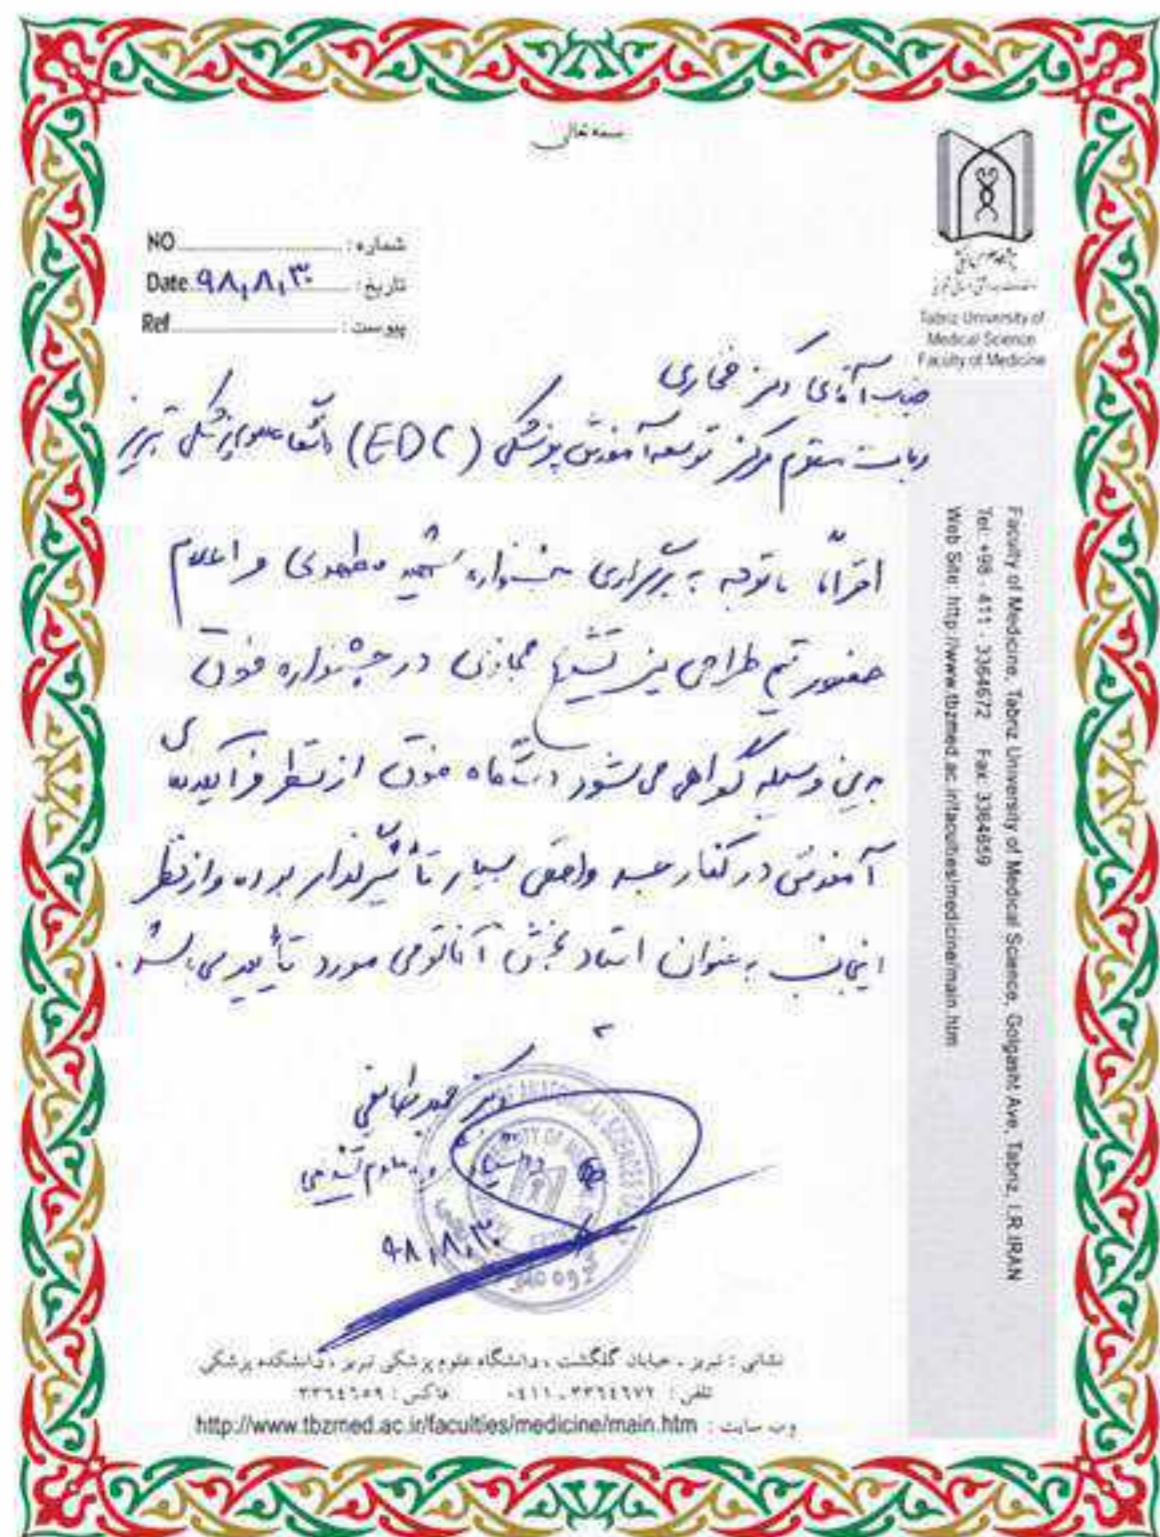 بسمه تعالی
دانشگاه علوم پزشکی
و خدمات بهداشتی درمانی تبریز
Tabriz University of
Medical Science
Faculty of Medicine
NO شماره :
Date ۹۸٫۸٫۳۰ تاریخ :
Ref پیوست :
جناب آقای دکتر غفاری
ریاست محترم مرکز توسعه آموزش پزشکی (EDC) دانشگاه علوم پزشکی تبریز
احتراماً باتوجه به برگزاری جشنواره شهید مطهری و اعلام
حضور تیم طراحی میز تشریح مجازی در جشنواره فوق
بدین وسیله گواهی می شود دستگاه فوق از نظر فرآیندهای
آموزشی در کنار جسد واقعی بسیار تأثیرگذار بوده و از نظر
اینجانب به عنوان استاد بخش آناتومی مورد تأیید می باشد.
دکتر
دانشیار علوم تشریحی
۹۸٫۸٫۳۰
Faculty of Medicine, Tabriz University of Medical Science, Golgasht Ave, Tabriz, I.R.IRAN
Tel: +98 - 411 - 3364672 Fax: 3364659
Web Site: http://www.tbzmed.ac.ir/faculties/medicine/main.htm
نشانی : تبریز ، خیابان گلگشت ، دانشگاه علوم پزشکی تبریز ، دانشکده پزشکی
تلفن : ۳۳۶۴۶۷۲ - ۰۴۱۱ فاکس : ۳۳۶۴۶۵۹
وب سایت : http://www.tbzmed.ac.ir/faculties/medicine/main.htm